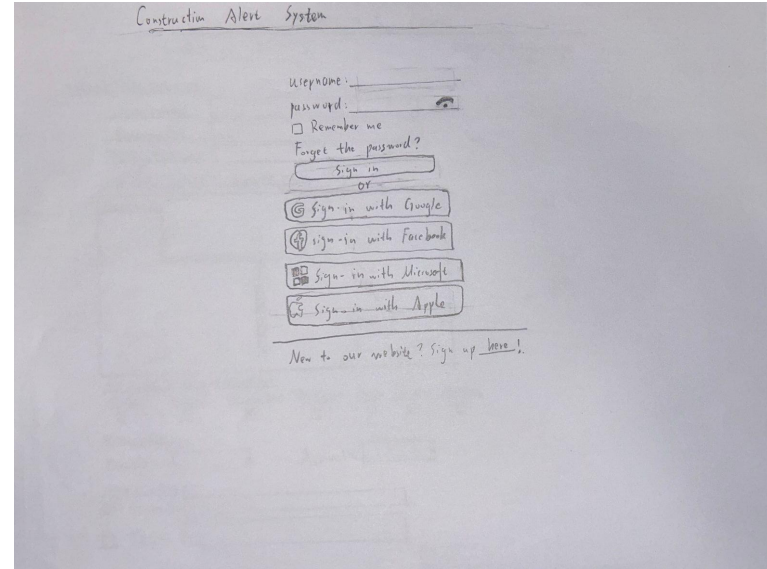 Construction Alert System
username:
password:
Remember me
Forget the password?
Sign in
or
G Sign-in with Google
f sign-in with Facebook
Sign-in with Microsoft
Sign-in with Apple
New to our website? Sign up here!